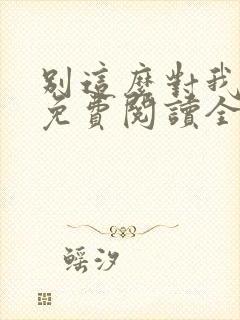 別這麼對我
免費閱讀全
鰩汐